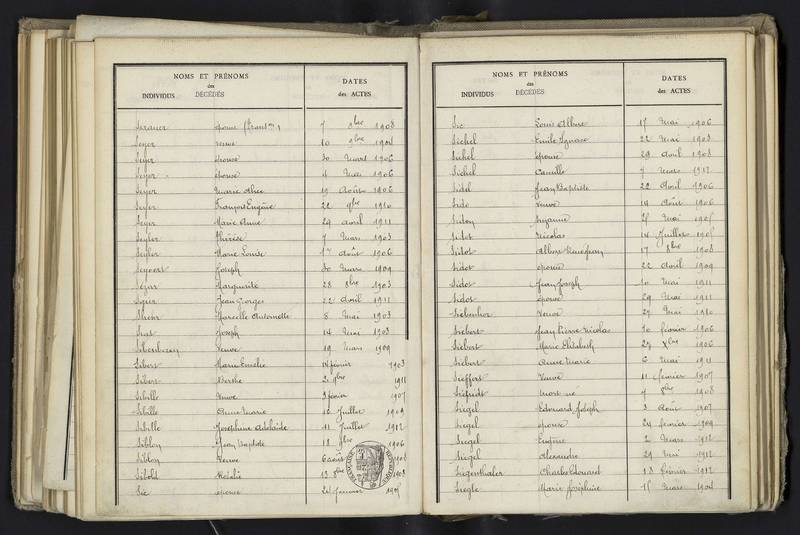 NOMS ET PRÉNOMS
des
INDIVIDUS DÉCÉDÉS
DATES
des ACTES
épouse 7 9bre 1908
Seyer veuve 10 9bre 1904
Seyer épouse 30 Mars 1906
Seyer épouse 4 Mai 1906
Seyer Marie Alice 19 Août 1906
Seyer François Eugène 22 9bre 1910
Seyer Marie Anne 29 avril 1911
Seyler Thérèse 9 Mars 1903
Seyler Marie Louise 1er août 1906
Joseph 30 Mars 1909
Marguerite 28 8bre 1903
Jean Georges 22 Avril 1911
Marcelle Antoinette 8 Mai 1903
Joseph 14 Mai 1903
Veuve 19 Mars 1909
Sibert Marie Emélie 14 février 1903
Sibert Berthe 21 9bre 1911
Sibille Veuve 3 février 1907
Sibille Anne Marie 10 Juillet 1909
Sibille Joséphine Adélaïde 11 Juillet 1912
Siblon Jean Baptiste 18 9bre 1906
Siblon Veuve 6 août
Sibold Rosalie 13 8bre 1903
Sic épouse 24 Janvier 1905
NOMS ET PRÉNOMS
des
INDIVIDUS DÉCÉDÉS
DATES
des ACTES
Sic Louis Albert 17 Mai 1906
Sichel Emile Ignace 22 Mai 1903
Sichel épouse 29 Août 1908
Sichel Camille 7 Mars 1912
Sidel Jean Baptiste 22 Avril 1906
Sido Veuve 14 Août 1906
Sidon Suzanne 25 Mai 1905
Sidot Nicolas 14 Juillet 1905
Sidot Albert René Jean 17 8bre 1908
Sidot épouse 22 Avril 1909
Sidot Jean Joseph 10 Mai 1911
Sidot épouse 29 Mai 1911
Veuve 27 Mai 1910
Siebert Jean Pierre Nicolas 10 février 1906
Siebert Marie Elisabeth 27 Xbre 1906
Siebert Anne Marie 6 Mai 1911
Sieffert Veuve 11 février 1907
mort né 9 8bre 1908
Siegel Edouard Joseph 3 Août 1907
Siegel épouse 24 février 1909
Siegel Eugène 2 Mars 1912
Siegel Alexandre 29 Mai 1912
Siegenthaler Charles Edouard 13 février 1912
Siegle Marie Joséphine 15 Mars 1904